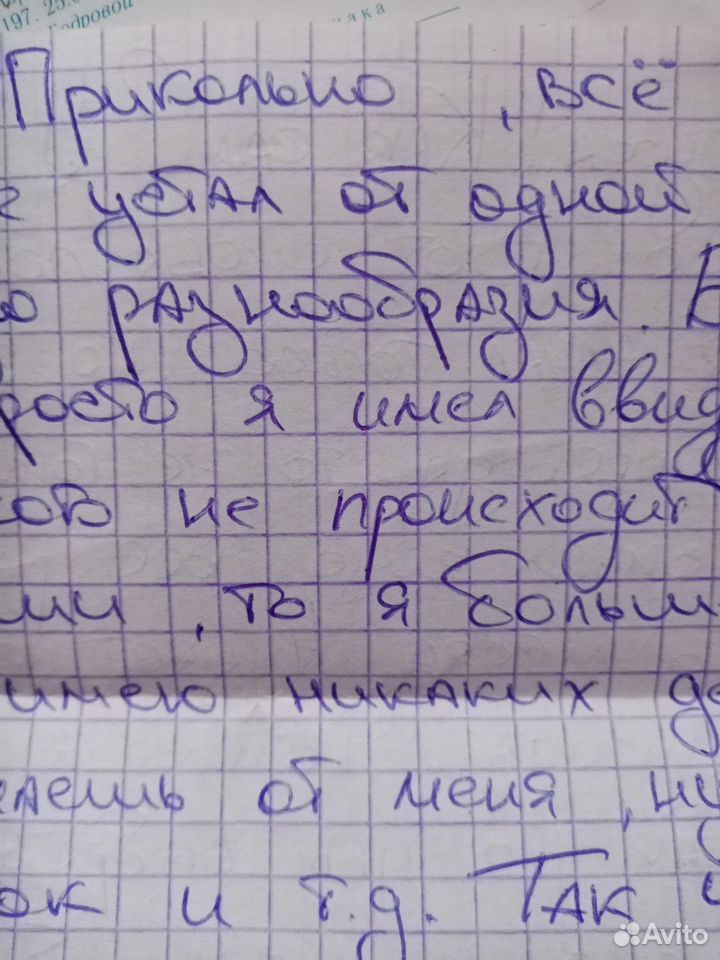 197. 25.
Прикольно , всё
е устал от одной
о разнообразия.
росто я имел ввид
ов не происходит
ми , то я больш
имею никаких де
лаешь от меня , ну
ок и т.д. Так
Avito